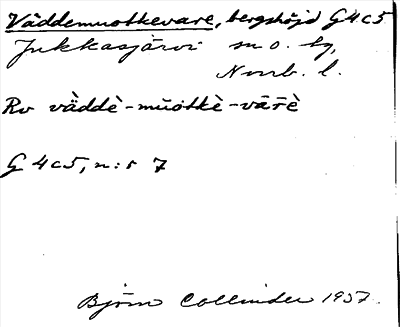 Väddemuotkevare, bergshöjd G4c5
Jukkasjärvi sn o. tg,
Norrb. l.
Rv väddè-muotkè-vārè
G 4c5, n:r 7
Björn Collinder 1957.